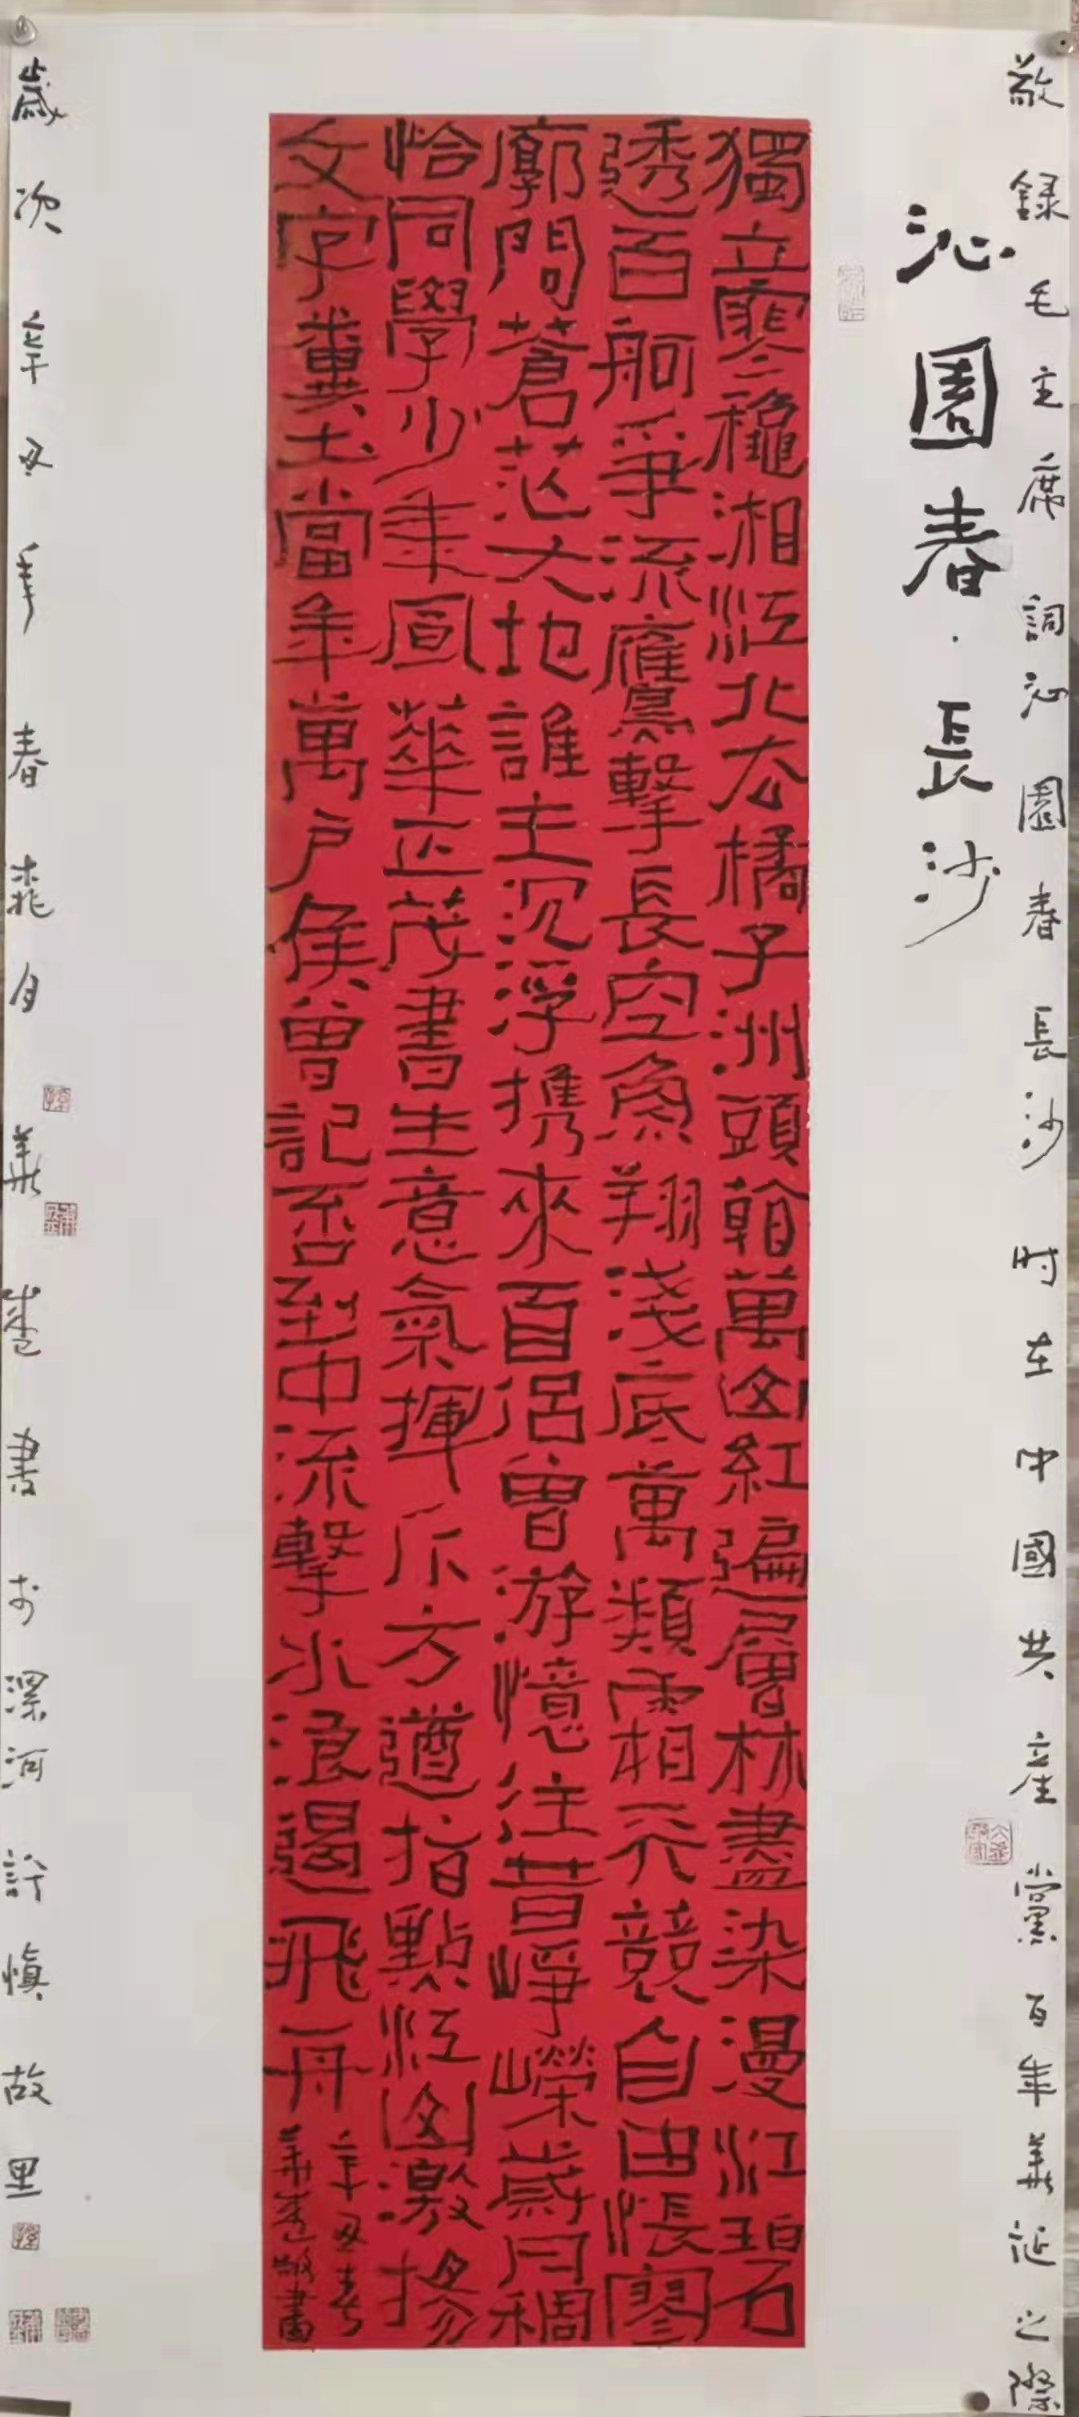 敬録毛主席詞沁園春長沙时在中國共產黨百年華诞之際
沁園春·長沙
獨立寒穐湘江北去橘子洲頭看萬山紅遍層林盡染漫江碧
透百舸爭流鷹擊長空魚翔淺底萬類霜天競自由悵寥
廓問蒼茫大地誰主沉浮携來百侣曾游憶往昔崢嶸歲月稠
恰同學少年風華正茂書生意氣揮斥方遒指點江山激揚
文字糞土當年萬户侯曾記否到中流擊水浪遏飛舟
辛丑春
華敬書
歲次辛丑年春桃月華書於漯河許慎故里